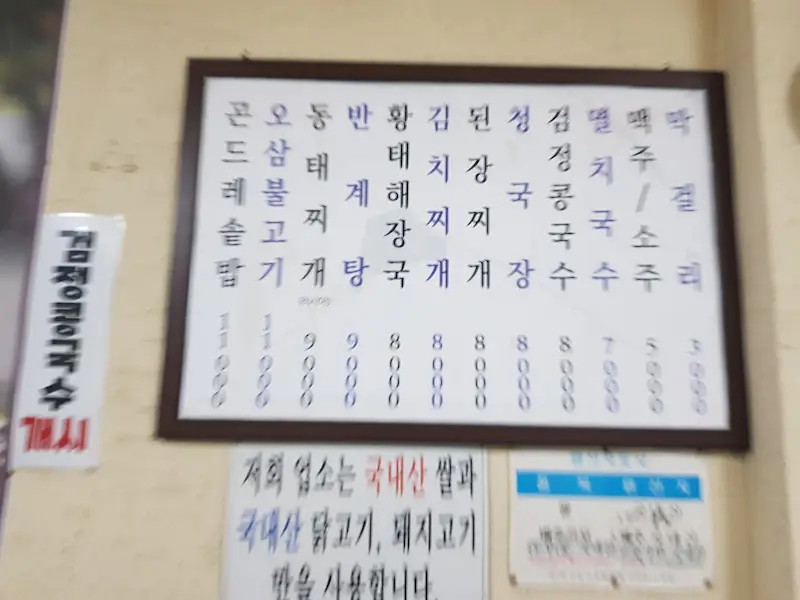 곤드레솥밥 11000
오삼불고기 11000
동태찌개 9000
반계탕 9000
황태해장국 8000
김치찌개 8000
된장찌개 8000
청국장 8000
검정콩국수 8000
멸치국수 7000
맥주/소주 5000
막걸리 3000
검정콩국수 개시
저희 업소는 국내산 쌀과
국내산 닭고기, 돼지고기
만을 사용합니다.